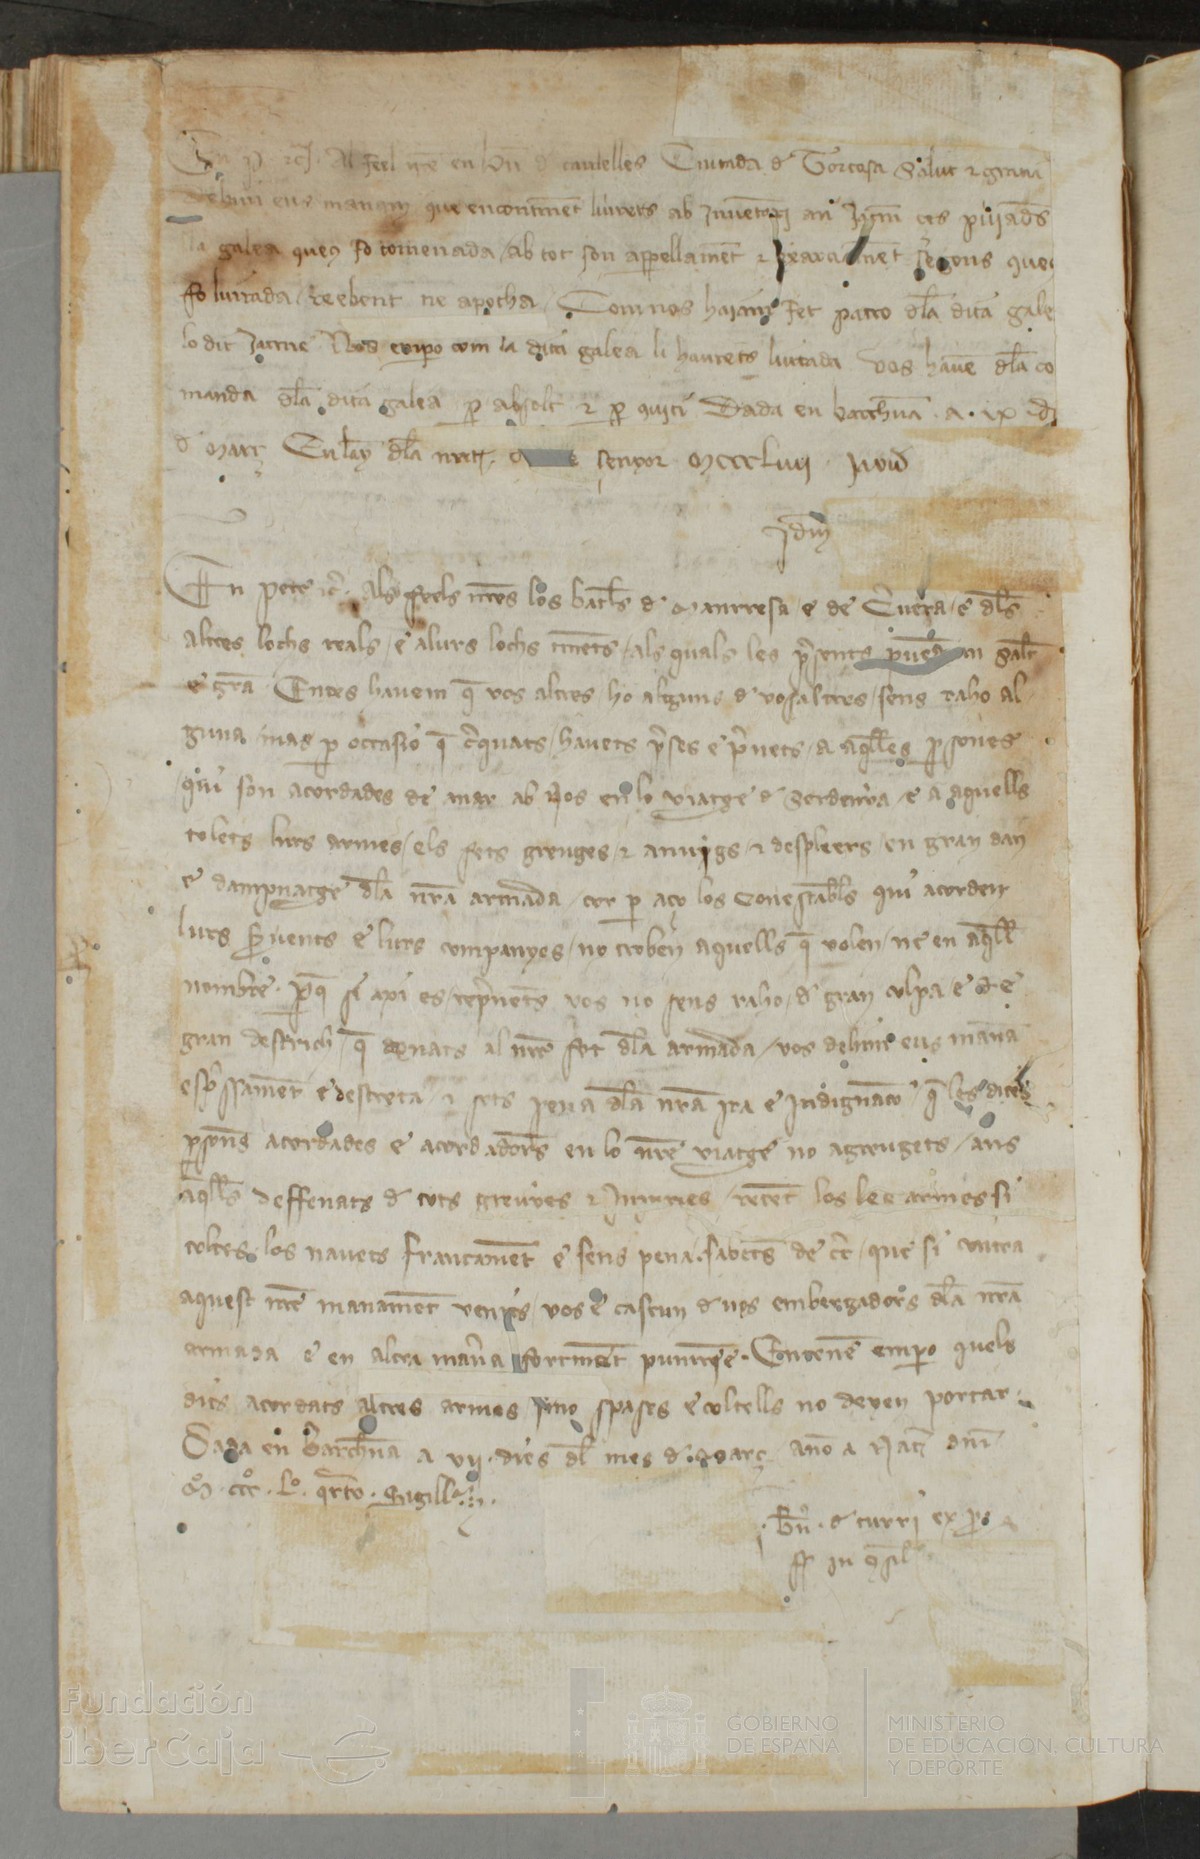 En P. etc. Al feel nre en Bn d canelles Ciutada d Tortosa Salut et gracia
Dehim eus manam que encontinent liurets ab Inventari an Jacme
la galea queus fo comenada / ab tot son appellament et exarciament segons que
fo liurada / reebent ne apocha / Com nos haiam fet patto dla dita gale
lo dit Jacme Nos empo com la dita galea li haurets liurada vos havem dla co
manda dla dita galea p absolt et p quiti Dada en barchna a ix dies
d març En lany dla nat senyor Mccclvii
Idm
En Pere etc. Als feels nres los batles d Manrresa / e de Cervera / e dls
altres lochs reals / e a lurs lochs tinents / als quals les psents salut
e gra Entes havem q vos altres / ho alguns d vosaltres / sens raho al
guna / mas p occasio q cerquats / havets preses e prenets / a aqlles psones
qui son acordades de anar ab Nos en lo viatge d Serdenya / e a aquells
tolets lurs armes / els fets greuges et anuigs et despleers / en gran dan
e dampnatge dla nra armada / cor p aço los Conestabls qui acorden
lurs sirvents e lurs companyes / no troben aquells q volen / ne en aqll
nombre. Pq si axi es / reprenets vos no sens raho / d gran colpa e de
gran destrich / q donats al nre fet dla armada / vos dehim eus mana
expssament e destreta et sots pena dla nra ira e indignacio / q les dites
psones acordades e acordadors en lo nre viatge no agreugets / ans
aqlls deffenats d tots greuges et Injuries / retent los les armes si
toltes los navets francament e sens pena. sabets de cert / que si contra
aquest nre manament venits / vos e cascun d vos embergadors dla nra
armada e en altra manera fortment punirem. Entenem empo quels
dits acordats altres armes sino spases e coltells no deyen portar
Dada en Barchna a vii dies dl mes d Març Ano a Nat dni
Mº. cccº. Lº. qrto. Sigill
Bn. d turri ex p
in consil
Fundación
iberCaja
GOBIERNO
DE ESPAÑA
MINISTERIO
DE EDUCACIÓN, CULTURA
Y DEPORTE